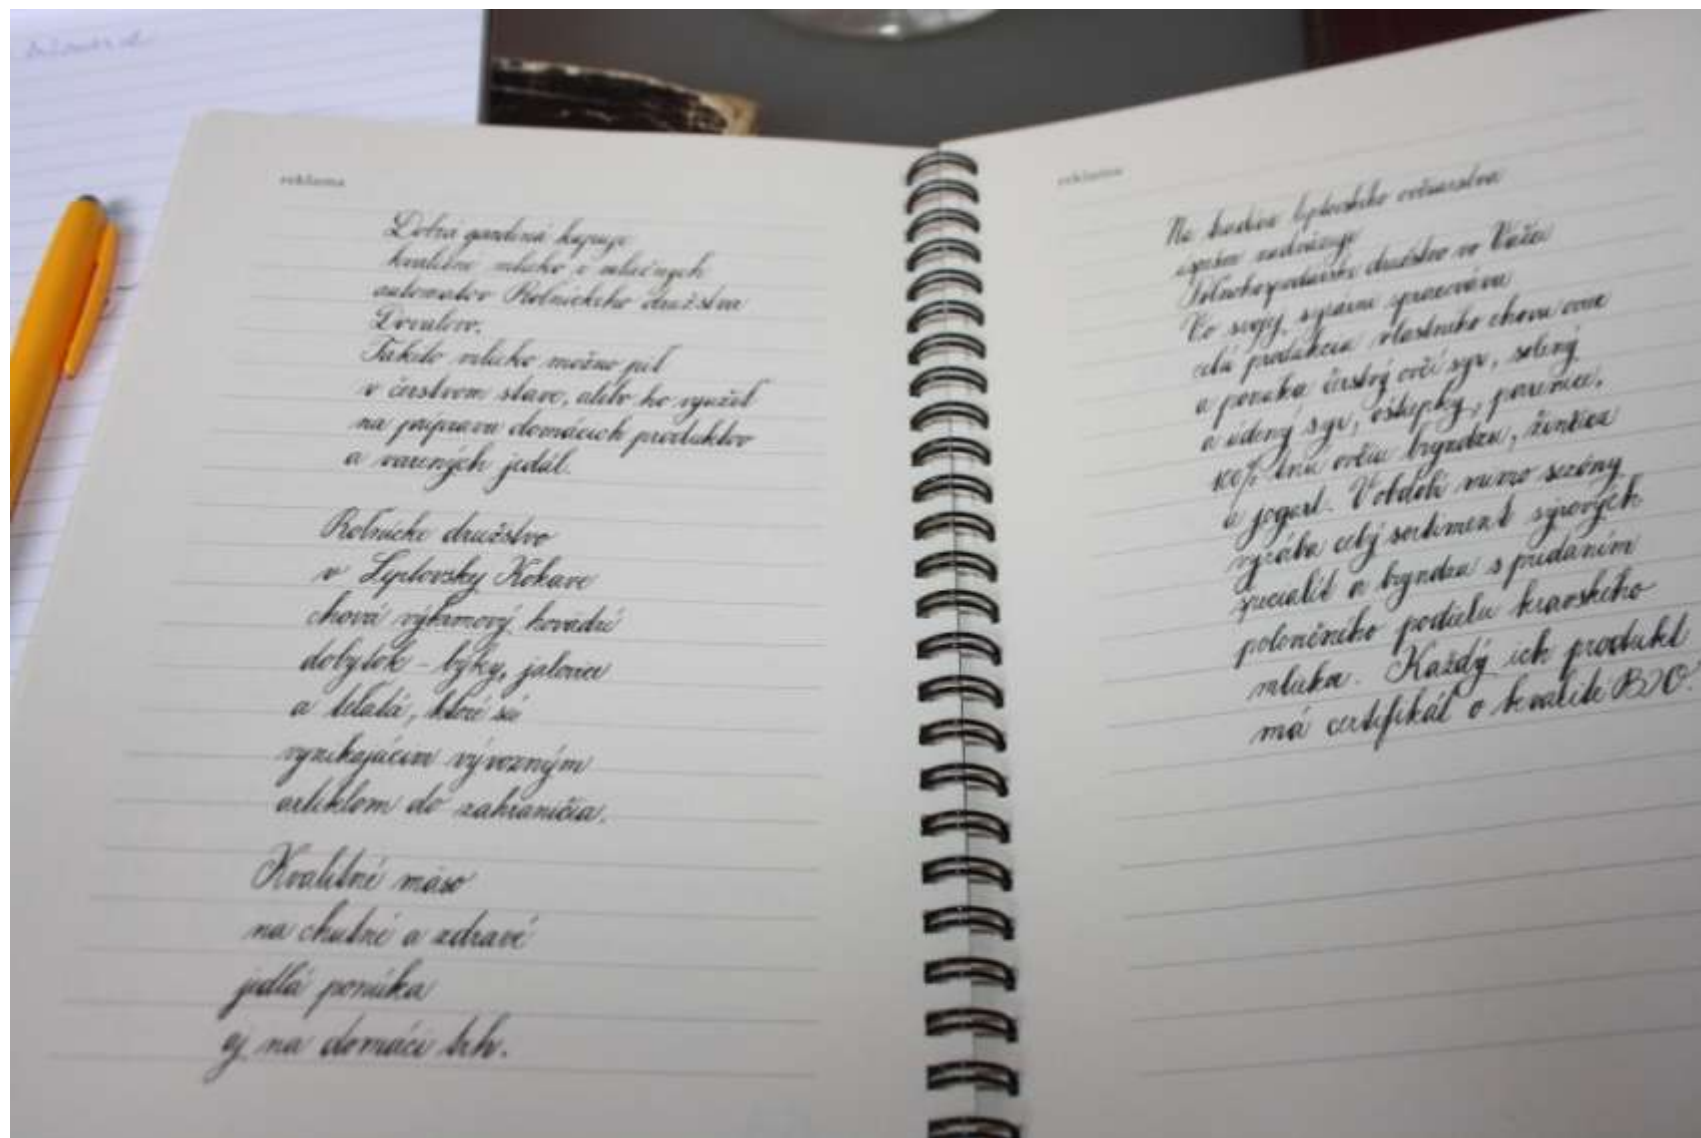 reklama
Dobrá gazdiná kupuje
kvalitné mlieko z mliečnych
automatov Roľníckeho družstva
Dovalovo.
Takéto mlieko možno piť
v čerstvom stave, alebo ho využiť
na prípravu domácich produktov
a varených jedál.
Roľnícke družstvo
v Liptovskej Kokave
chová výkrmový hovädzí
dobytok - býky, jalovice
a teľatá, ktoré sú
vynikajúcim vývozným
artiklom do zahraničia.
Kvalitné mäso
na chutné a zdravé
jedlá ponúka
aj na domáci trh.
reklama
Na tradíciu liptovského ovčiarstva
úspešne nadväzuje
Poľnohospodárske družstvo vo Važci
Vo svojej syrárni spracováva
celú produkciu vlastného chovu oviec
a ponúka čerstvý ovčí syr, solený
a údený syr, oštiepky, parenice,
100% -nú ovčiu bryndzu, žinčicu
a jogurt. V období mimo sezóny
vyrába celý sortiment syrových
špecialít a bryndzu s pridaním
polovičného podielu kravského
mlieka. Každý ich produkt
má certifikát o kvalite BIO!